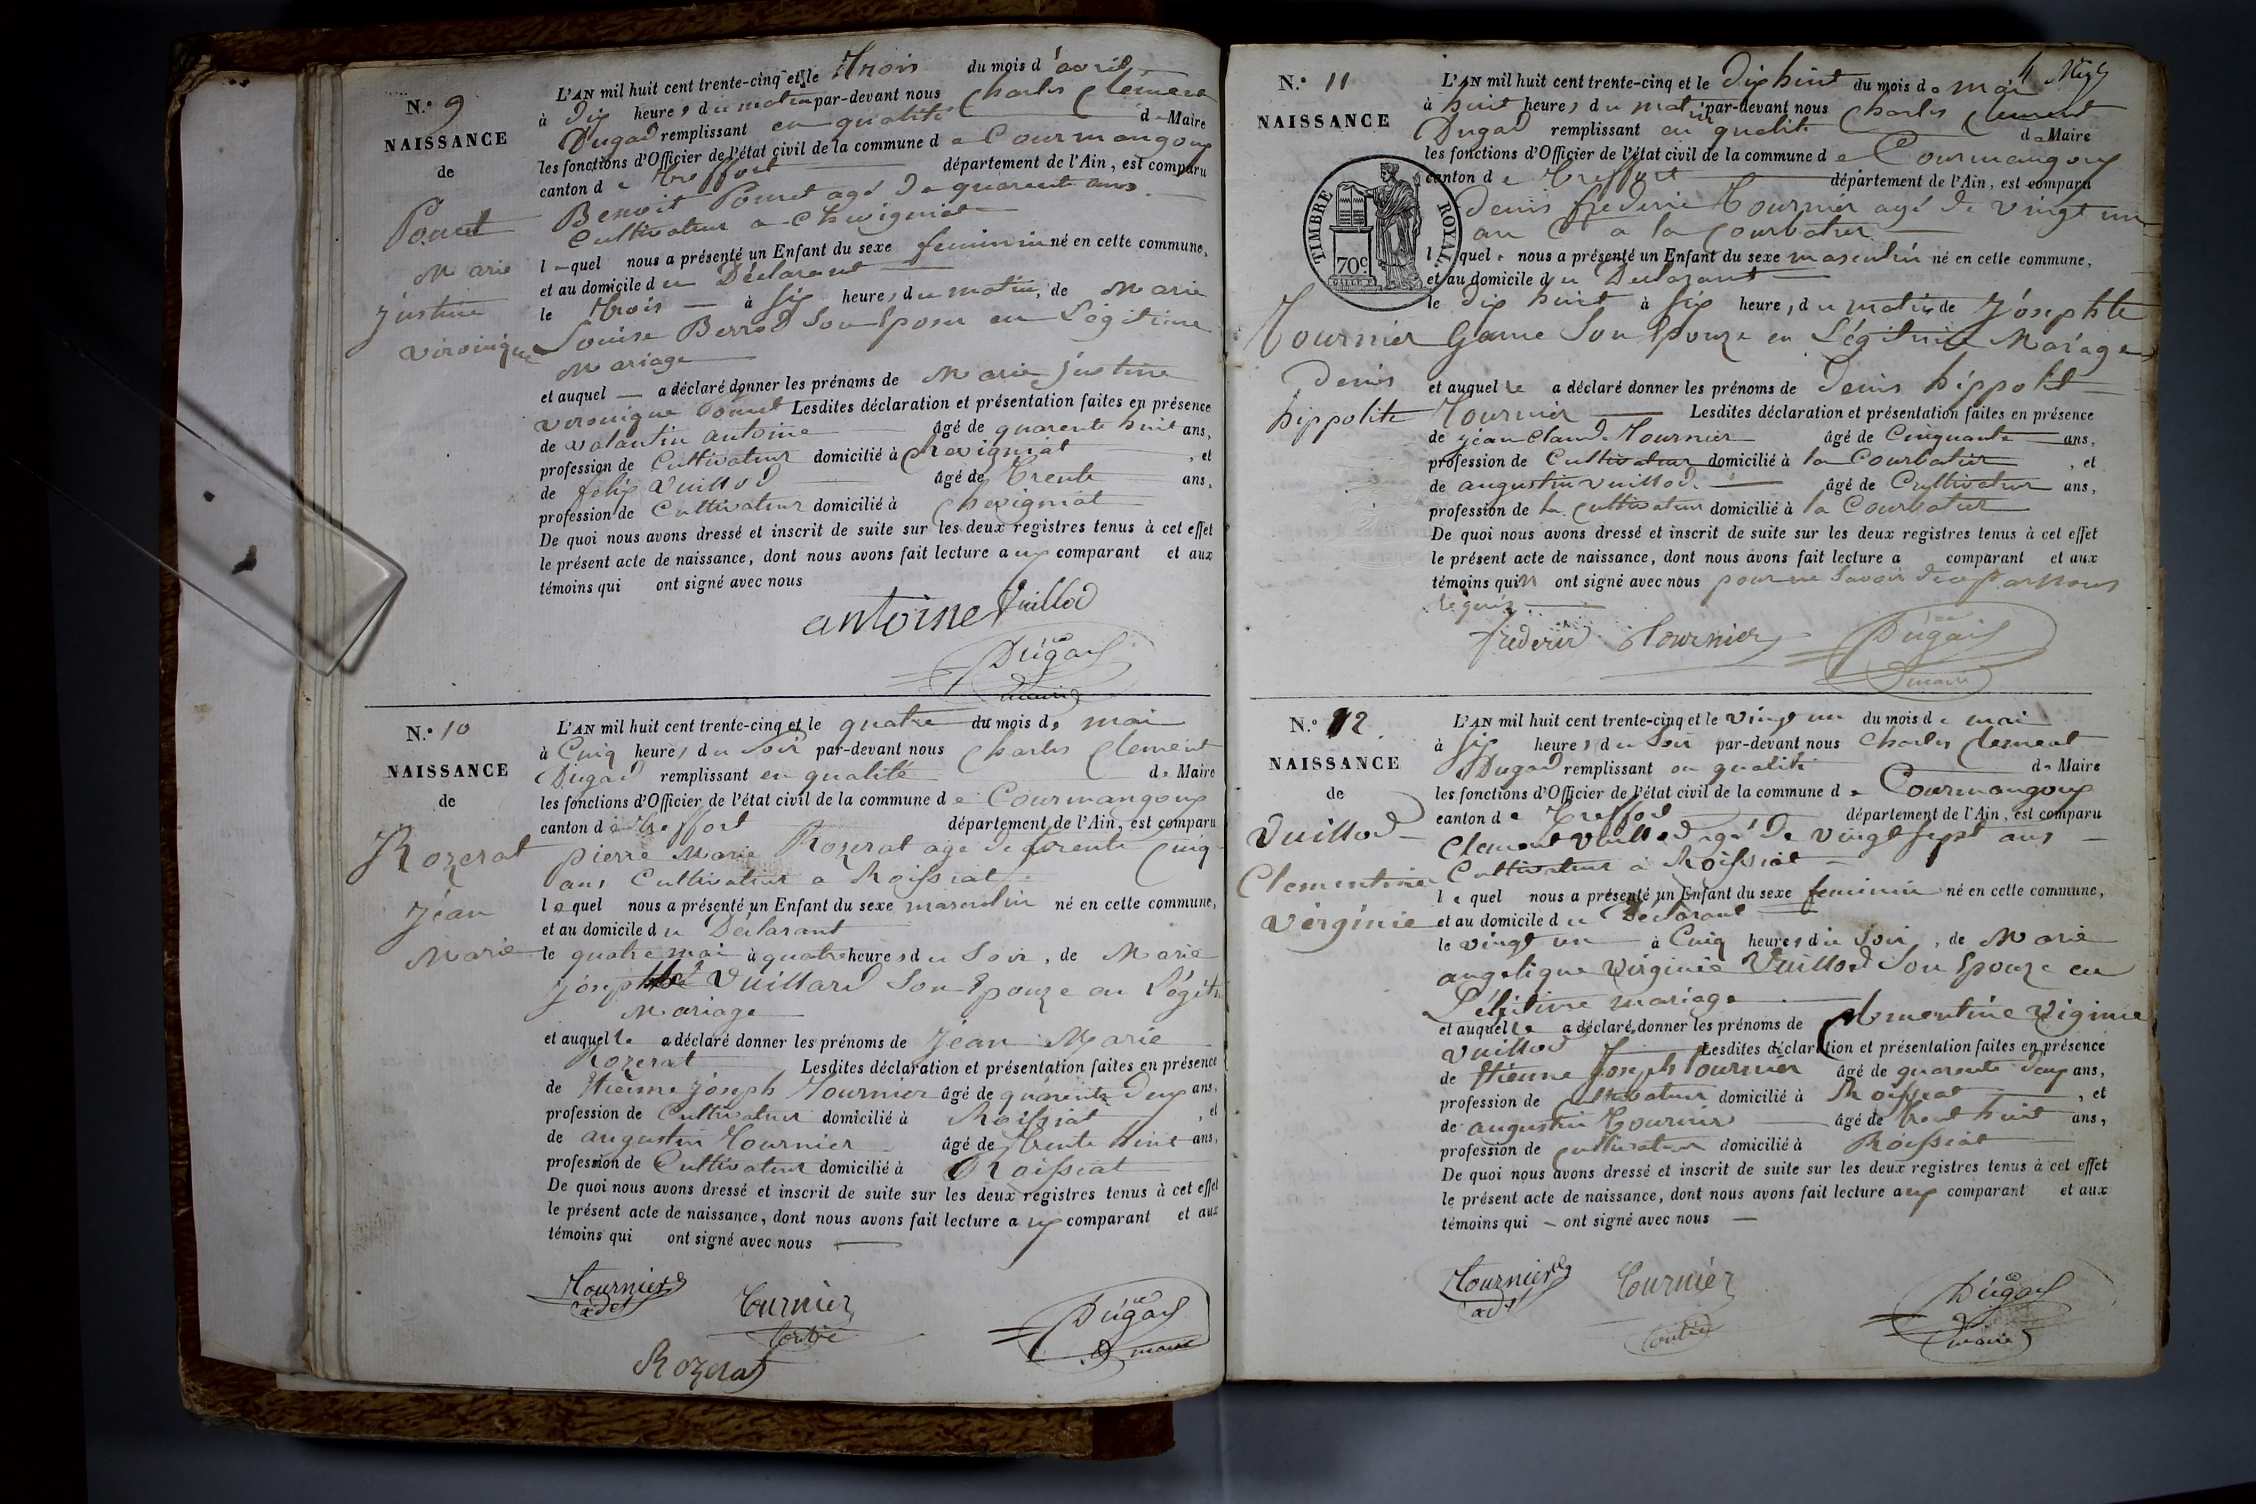 N.º 9
NAISSANCE
de
Pomet
Marie
justine
véronique
L'AN mil huit cent trente-cinq et le Trois du mois d'avril
à dix heures du matin par-devant nous Charles Clement
Dugad remplissant en qualité de Maire
les fonctions d'Officier de l'état civil de la commune de Courmangoux
canton de Treffort département de l'Ain, est comparu
Benoit Pomet agé de quarente ans
Cultivateur a Chevigniat
lequel nous a présenté un Enfant du sexe feminin né en cette commune,
et au domicile du Déclarant
le Trois à six heures du matin, de Marie
Louise Berrod Son Epouse en Légitime
Mariage
et auquel a déclaré donner les prénoms de Marie justine
veronique Pomet Lesdites déclaration et présentation faites en présence
de valantin antoine âgé de quarente huit ans,
profession de Cultivateur domicilié à Chevigniat, et
de felix Vuillod âgé de Trente ans,
profession de Cultivateur domicilié à Chevigniat
De quoi nous avons dressé et inscrit de suite sur les deux registres tenus à cet effet
le présent acte de naissance, dont nous avons fait lecture aux comparant et aux
témoins qui ont signé avec nous
antoine Vuillod
Dugad
maire
N.º 10
NAISSANCE
de
Rozerat
jéan
Marie
L'AN mil huit cent trente-cinq et le quatre du mois de mai
à Cinq heures du Soir par-devant nous Charles Clement
Dugad remplissant en qualité de Maire
les fonctions d'Officier de l'état civil de la commune de Courmangoux
canton de Treffort département de l'Ain, est comparu
pierre Marie Rozerat age de trente Cinq
ans Cultivateur a Roissiat
lequel nous a présenté un Enfant du sexe masculin né en cette commune,
et au domicile du Déclarant
le quatre mai à quatre heures du Soir, de Marie
Vuillard Son Epouze en Légit
Mariage
et auquel le a déclaré donner les prénoms de jéan Marie
Rozerat Lesdites déclaration et présentation faites en présence
de Etienne joseph Tournier âgé de quarente deux ans,
profession de Cultivateur domicilié à Roissiat, et
de augustin Tournier âgé de trente huit ans,
profession de Cultivateur domicilié à Roissiat
De quoi nous avons dressé et inscrit de suite sur les deux registres tenus à cet effet
le présent acte de naissance, dont nous avons fait lecture aux comparant et aux
témoins qui ont signé avec nous
Tournier Tournier
Dugad
maire
Rozerat
4
N.º 11
NAISSANCE
TIMBRE ROYAL
70c
Tournier
Denis
hippolite
L'AN mil huit cent trente-cinq et le dix huit du mois de mai
à huit heures du matin par-devant nous Charles Clement
Dugad remplissant en qualité de Maire
les fonctions d'Officier de l'état civil de la commune de Courmangoux
canton de Treffort département de l'Ain, est comparu
Denis frederic Tournier agé de vingt un
an a la Courbatier
lequel nous a présenté un Enfant du sexe masculin né en cette commune,
et au domicile du Declarant
le dix huit à six heures du matin de
Son Epouze en Légitime Mariage
et auquel le a déclaré donner les prénoms de Denis hippolit
Tournier Lesdites déclaration et présentation faites en présence
de jéan Claude Tournier âgé de Cinquante ans,
profession de Cultivateur domicilié à la Courbatier, et
de augustin vuillod âgé de Cultivateur ans,
profession de la Cultivateur domicilié à la Courbatier
De quoi nous avons dressé et inscrit de suite sur les deux registres tenus à cet effet
le présent acte de naissance, dont nous avons fait lecture a comparant et aux
témoins qui ont signé avec nous pour ne Savoir
frederic Tournier Dugad
maire
N.º 12
NAISSANCE
de
Vuillod
Clementine
vérginie
L'AN mil huit cent trente-cinq et le vingt un du mois de mai
à six heures du Soir par-devant nous Charles Clement
Dugad remplissant en qualité de Maire
les fonctions d'Officier de l'état civil de la commune de Courmangoux
canton de département de l'Ain, est comparu
Clement Vuillod agé de vingt sept ans
Cultivateur a Roissiat
lequel nous a présenté un Enfant du sexe feminin né en cette commune,
et au domicile du Déclarant
le vingt un à Cinq heures du Soir, de Marie
angelique Virginie Vuillod Son Epouze en
mariage
et auquel le a déclaré donner les prénoms de Clementine
Vuillod Lesdites déclaration et présentation faites en présence
de Etienne Joseph Tournier âgé de quarente deux ans,
profession de Cultivateur domicilié à Roissiat, et
de augustin Tournier âgé de trent huit ans,
profession de Cultivateur domicilié à Roissiat
De quoi nous avons dressé et inscrit de suite sur les deux registres tenus à cet effet
le présent acte de naissance, dont nous avons fait lecture aux comparant et aux
témoins qui ont signé avec nous
Tournier Tournier
Dugad
maire